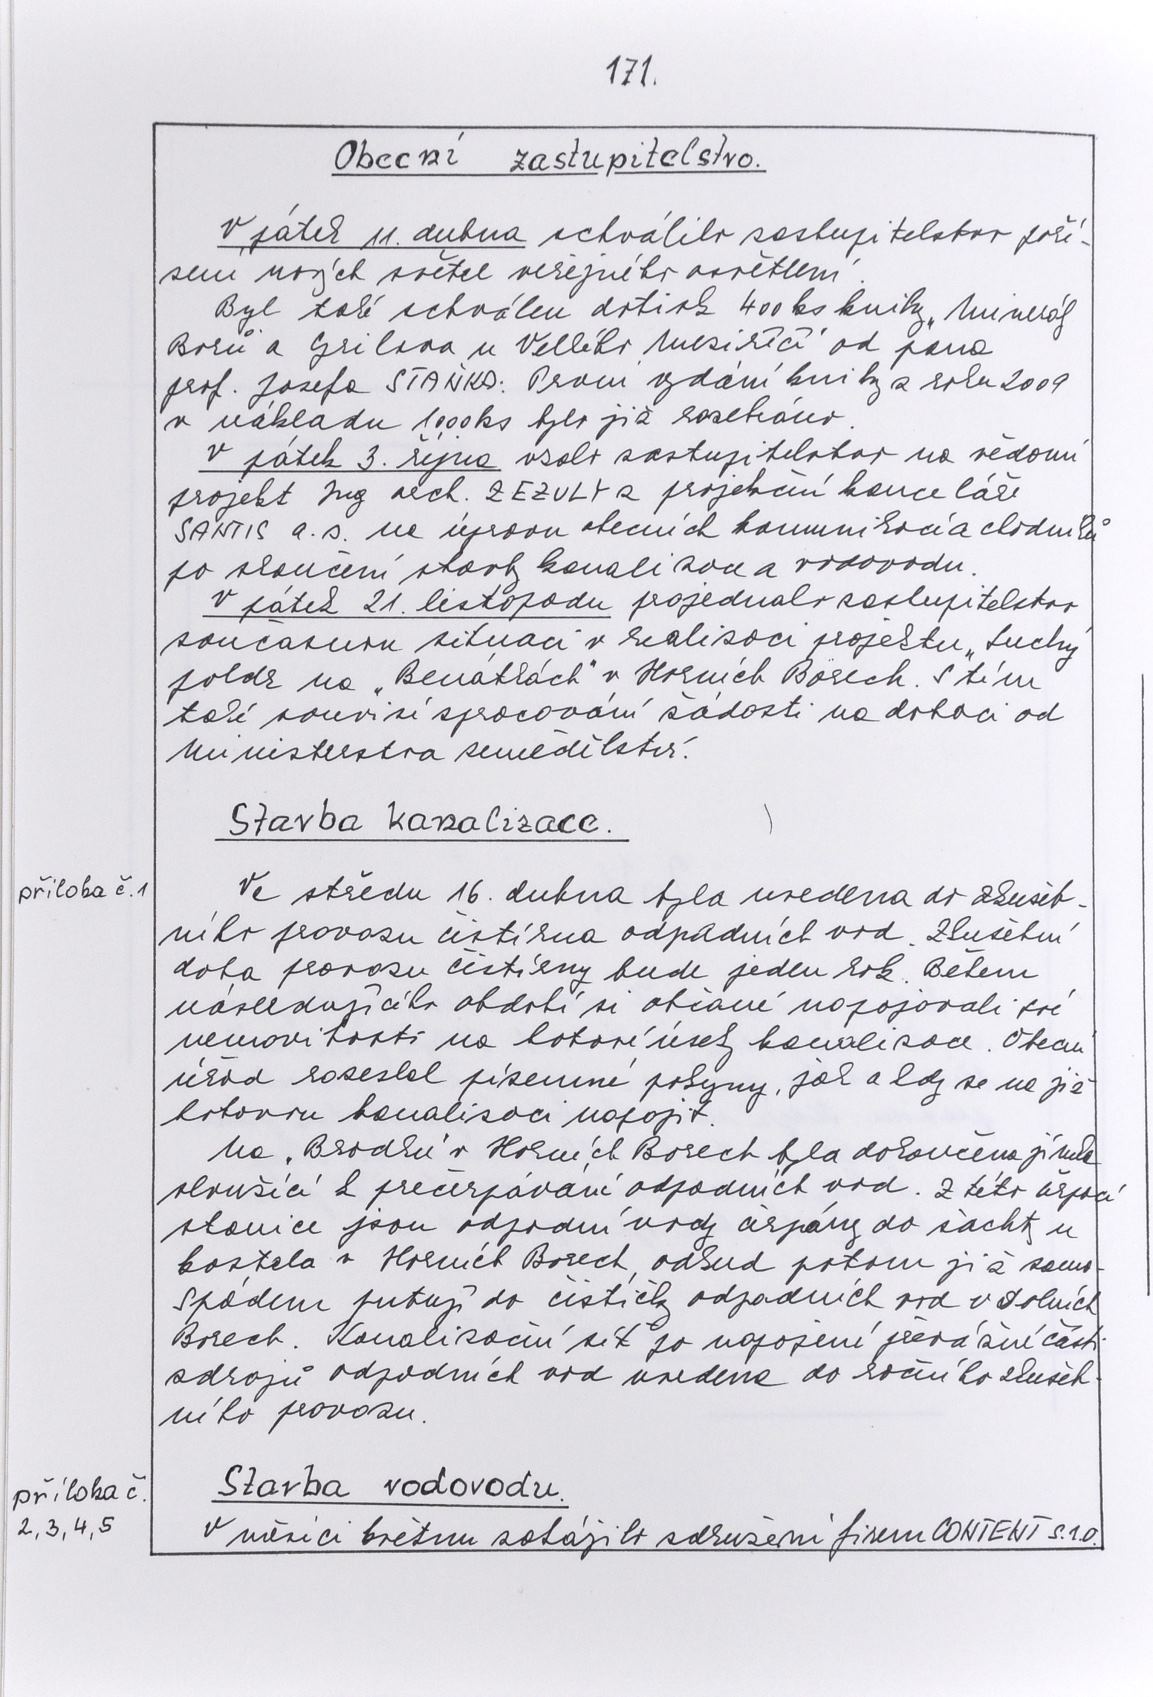 171.
Obecní zastupitelstvo.
V pátek 11. dubna schválilo zastupitelstvo poří-
zení nových světel veřejného osvětlení.
Byl také schválen dotisk 400 ks knihy „Minerály
Borů a Cyrilova u Velkého Meziříčí" od pana
prof. Josefa STAŇKA. První vydání knihy z roku 2009
v nákladu 1000 ks bylo již rozebráno.
V pátek 3. října vzalo zastupitelstvo na vědomí
projekt Ing arch. ZEZULY z projekční kanceláře
SANTIS a.s. na úpravu obecních komunikací a chodníků
po skončení stavby kanalizace a vodovodu.
V pátek 21. listopadu projednalo zastupitelstvo
současnou situaci v realizaci projektu „Suchý
poldr na „Benátkách" v Horních Borech. S tím
také souvisí zpracování žádosti na dotaci od
Ministerstva zemědělství.
Stavba kanalizace.
příloha č. 1
Ve středu 16. dubna byla uvedena do zkušeb-
ního provozu čistírna odpadních vod. Zkušební
doba provozu čistírny bude jeden rok. Během
následujícího období si občané napojovali své
nemovitosti na hotové úseky kanalizace. Obecní
úřad rozeslal písemné pokyny, jak a kdy se na již
hotovou kanalizaci napojit.
Na „Brodku" v Horních Borech byla dokončena jímka
sloužící k přečerpávání odpadních vod. Z této čerpací
stanice jsou odpadní vody čerpány do šachty u
kostela v Horních Borech, odkud potom již samo-
spádem putují do čističky odpadních vod v Dolních
Borech. Kanalizační síť po napojení převážné části
zdrojů odpadních vod uvedena do ročního zkušeb-
ního provozu.
příloha č.
2, 3, 4, 5
Stavba vodovodu.
V měsíci květnu zahájilo sdružení firem CONTENT s.r.o.